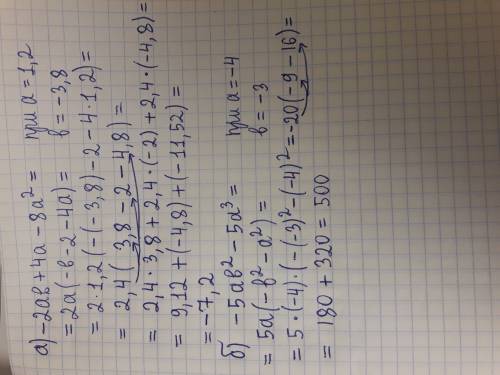 а) -2ав + 4а - 8а² = при а = 1,2
= 2а(-в - 2 - 4а) = в = -3,8
= 2·1,2(-(-3,8) - 2 - 4·1,2) =
= 2,4(3,8 - 2 - 4,8) =
= 2,4·3,8 + 2,4·(-2) + 2,4·(-4,8) =
= 9,12 + (-4,8) + (-11,52) =
= -7,2
б) -5ав² - 5а³ = при а = -4
= 5а(-в² - а²) = в = -3
= 5·(-4)·(-(-3)² - (-4)² = -20(-9 - 16) =
= 180 + 320 = 500